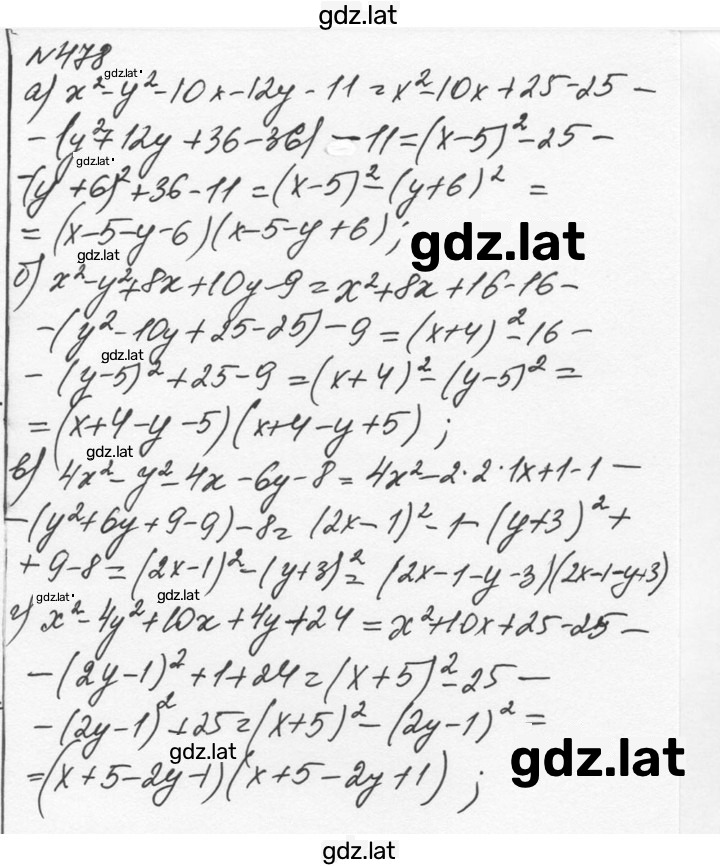 gdz.lat
№478
gdz.lat
а) x²-y²-10x-12y-11=x²-10x+25-25-
-(y²+12y+36-36)-11=(x-5)²-25-
gdz.lat
-(y+6)²+36-11=(x-5)²-(y+6)² =
=(x-5-y-6)(x-5-y+6);
gdz.lat
gdz.lat
б) x²-y²+8x+10y-9=x²+8x+16-16-
-(y²-10y+25-25)-9=(x+4)²-16-
gdz.lat
-(y-5)²+25-9=(x+4)²-(y-5)²=
=(x+4-y-5)(x+4-y+5);
gdz.lat
в) 4x²-y²-4x-6y-8=4x²-2·2·1x+1-1-
-(y²+6y+9-9)-8=(2x-1)²-1-(y+3)²+
+9-8=(2x-1)²-(y+3)²=(2x-1-y-3)(2x-1-y+3)
gdz.lat
gdz.lat
г) x²-4y²+10x+4y+24=x²+10x+25-25-
-(2y-1)²+1+24=(x+5)²-25-
-(2y-1)²+25=(x+5)²-(2y-1)²=
gdz.lat
gdz.lat
=(x+5-2y-1)(x+5-2y+1);
gdz.lat